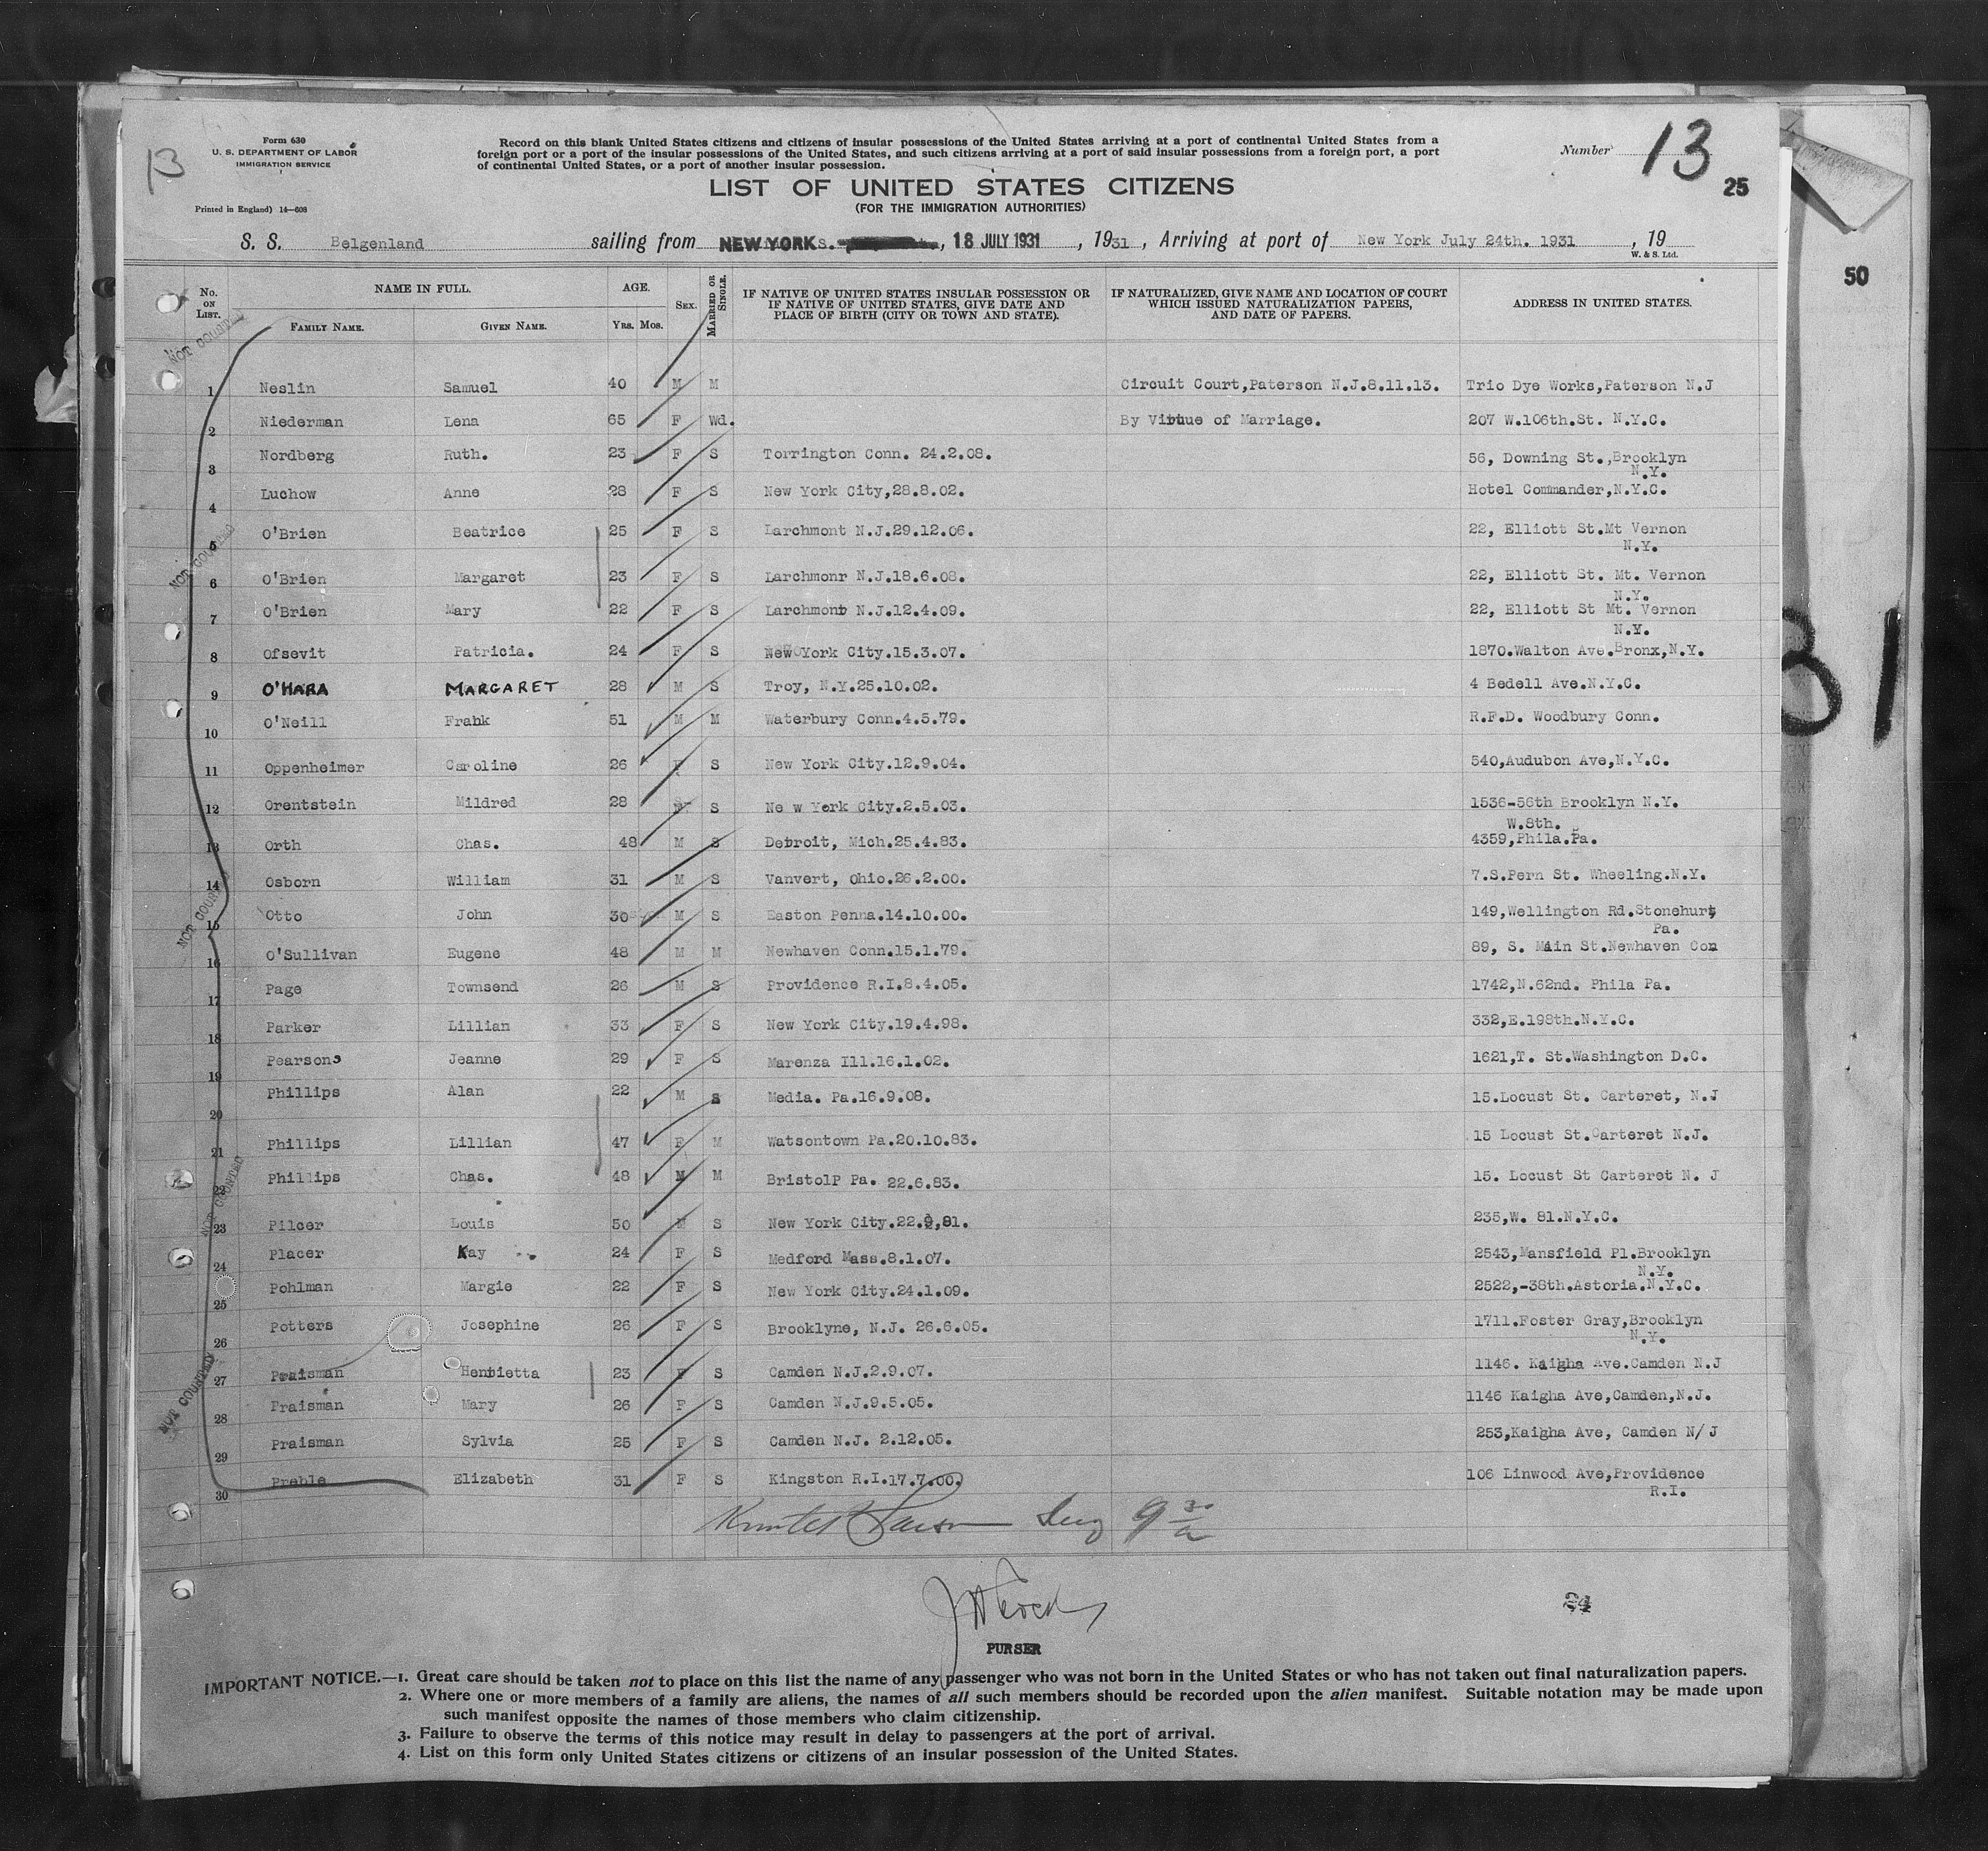 Form 630
U. S. DEPARTMENT OF LABOR
IMMIGRATION SERVICE
Printed in England) 14—608
13
Record on this blank United States citizens and citizens of insular possessions of the United States arriving at a port of continental United States from a
foreign port or a port of the insular possessions of the United States, and such citizens arriving at a port of said insular possessions from a foreign port, a port
of continental United States, or a port of another insular possession.
Number 13
25
LIST OF UNITED STATES CITIZENS
(FOR THE IMMIGRATION AUTHORITIES)
S. S. Belgenland sailing from NEW YORK , 18 JULY 1931 , 1931 , Arriving at port of New York July 24th. 1931 , 19
W. & S. Ltd.
50
No. ON LIST. NAME IN FULL. FAMILY NAME. GIVEN NAME. AGE. Yrs. Mos. SEX. MARRIED OR SINGLE. IF NATIVE OF UNITED STATES INSULAR POSSESSION OR IF NATIVE OF UNITED STATES, GIVE DATE AND PLACE OF BIRTH (CITY OR TOWN AND STATE). IF NATURALIZED, GIVE NAME AND LOCATION OF COURT WHICH ISSUED NATURALIZATION PAPERS, AND DATE OF PAPERS. ADDRESS IN UNITED STATES.
NOT COUNTED
1 Neslin Samuel 40 M M Circuit Court,Paterson N.J.8.11.13. Trio Dye Works,Paterson N.J
2 Niederman Lena 65 F Wd. By Virtue of Marriage. 207 W.106th.St. N.Y.C.
3 Nordberg Ruth. 23 F S Torrington Conn. 24.2.08. 56, Downing St.,Brooklyn
N.Y.
4 Luchow Anne 28 F S New York City,28.8.02. Hotel Commander,N.Y.C.
5 O'Brien Beatrice 25 F S Larchmont N.J.29.12.06. 22, Elliott St.Mt Vernon
N.Y.
NOT COUNTED
6 O'Brien Margaret 23 F S Larchmonr N.J.18.6.08. 22, Elliott St. Mt. Vernon
N.Y.
7 O'Brien Mary 22 F S Larchmont N.J.12.4.09. 22, Elliott St Mt. Vernon
N.Y.
8 Ofsevit Patricia. 24 F S New York City.15.3.07. 1870.Walton Ave.Bronx,N.Y.
9 O'HARA MARGARET 28 M S Troy, N.Y.25.10.02. 4 Bedell Ave.N.Y.C.
10 O'Neill Frank 51 M M Waterbury Conn.4.5.79. R.F.D. Woodbury Conn.
11 Oppenheimer Caroline 26 F S New York City.12.9.04. 540,Audubon Ave,N.Y.C.
12 Orentstein Mildred 28 F S Ne w York City.2.5.03. 1536-56th Brooklyn N.Y.
W.8th.
13 Orth Chas. 48 M S Detroit, Mich.25.4.83. 4359,Phila.Pa.
14 Osborn William 31 M S Vanvert, Ohio.26.2.00. 7.S.Pern St. Wheeling.N.Y.
15 Otto John 30 M S Easton Penna.14.10.00. 149,Wellington Rd.Stonehurt,
Pa.
NOT COUNTED
16 O'Sullivan Eugene 48 M M Newhaven Conn.15.1.79. 89, S. Main St.Newhaven Con
17 Page Townsend 26 M S Providence R.I.8.4.05. 1742,N.62nd. Phila Pa.
18 Parker Lillian 33 F S New York City.19.4.98. 332,E.198th.N.Y.C.
19 Pearsons Jeanne 29 F S Marenza Ill.16.1.02. 1621,T. St.Washington D.C.
20 Phillips Alan 22 M S Media. Pa.16.9.08. 15.Locust St. Carteret, N.J
21 Phillips Lillian 47 F M Watsontown Pa.20.10.83. 15 Locust St.Carteret N.J.
22 Phillips Chas. 48 M M Bristolp Pa. 22.6.83. 15. Locust St Carteret N. J
NOT COUNTED
23 Pilcer Louis 50 M S New York City.22.9,81. 235,W. 81.N.Y.C.
24 Placer Kay 24 F S Medford Mass.8.1.07. 2543,Mansfield Pl.Brooklyn
N.Y.
25 Pohlman Margie 22 F S New York City.24.1.09. 2522,-38th.Astoria.N.Y.C.
26 Potters Josephine 26 F S Brooklyne, N.J. 26.6.05. 1711.Foster Gray,Brooklyn
N.Y.
27 Praisman Henrietta 23 F S Camden N.J.2.9.07. 1146. Kaigha Ave.Camden N.J
28 Praisman Mary 26 F S Camden N.J.9.5.05. 1146 Kaigha Ave,Camden,N.J.
NOT COUNTED
29 Praisman Sylvia 25 F S Camden N.J. 2.12.05. 253,Kaigha Ave, Camden N/J
30 Preble Elizabeth 31 F S Kingston R.I.17.7.00. 106 Linwood Ave,Providence
R.I.
24
PURSER
IMPORTANT NOTICE.—1. Great care should be taken not to place on this list the name of any passenger who was not born in the United States or who has not taken out final naturalization papers.
2. Where one or more members of a family are aliens, the names of all such members should be recorded upon the alien manifest. Suitable notation may be made upon
such manifest opposite the names of those members who claim citizenship.
3. Failure to observe the terms of this notice may result in delay to passengers at the port of arrival.
4. List on this form only United States citizens or citizens of an insular possession of the United States.